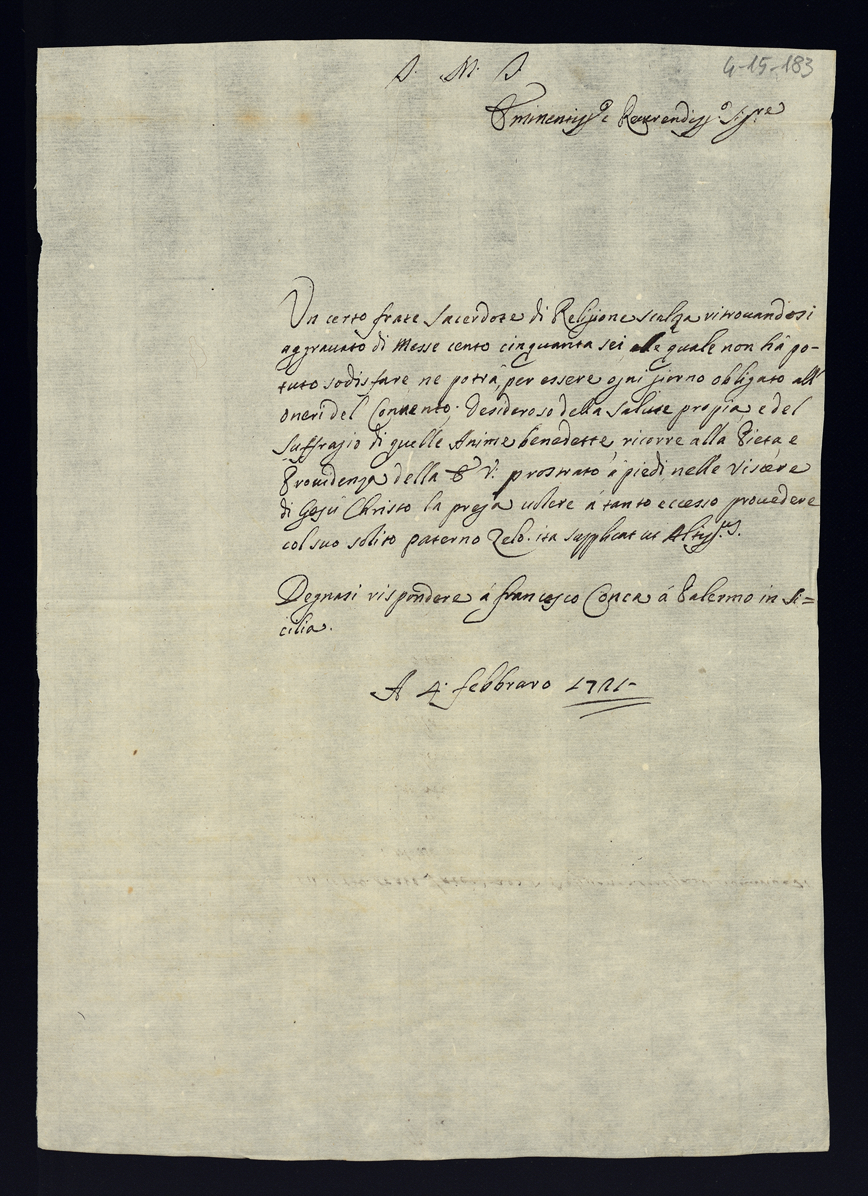 J. M. J.
4-15-183
Eminentiss.o e Reverendiss.o Sig.re
Un certo frate Sacerdote di Religione scalza ritrovandosi
aggravato di Messe cento cinquanta sei alle quale non há po-
tuto sodisfare ne potrá, per essere ogni jorno obligato all'
oneri del Convento; desideroso della Salute propia e del
Suffragio di quelle Anime benedette ricorre alla Pieta e
Providenza della E V. prostrato á piedi nelle viscere
di Gesú Christo la prega volere á tanto eccesso provedere
col suo solito paterno Zelo. ita supplicat ut Altiss.us.
Degnasi rispondere á francesco Conca á Palermo in Si=
cilia.
A 4. febbraro 1721